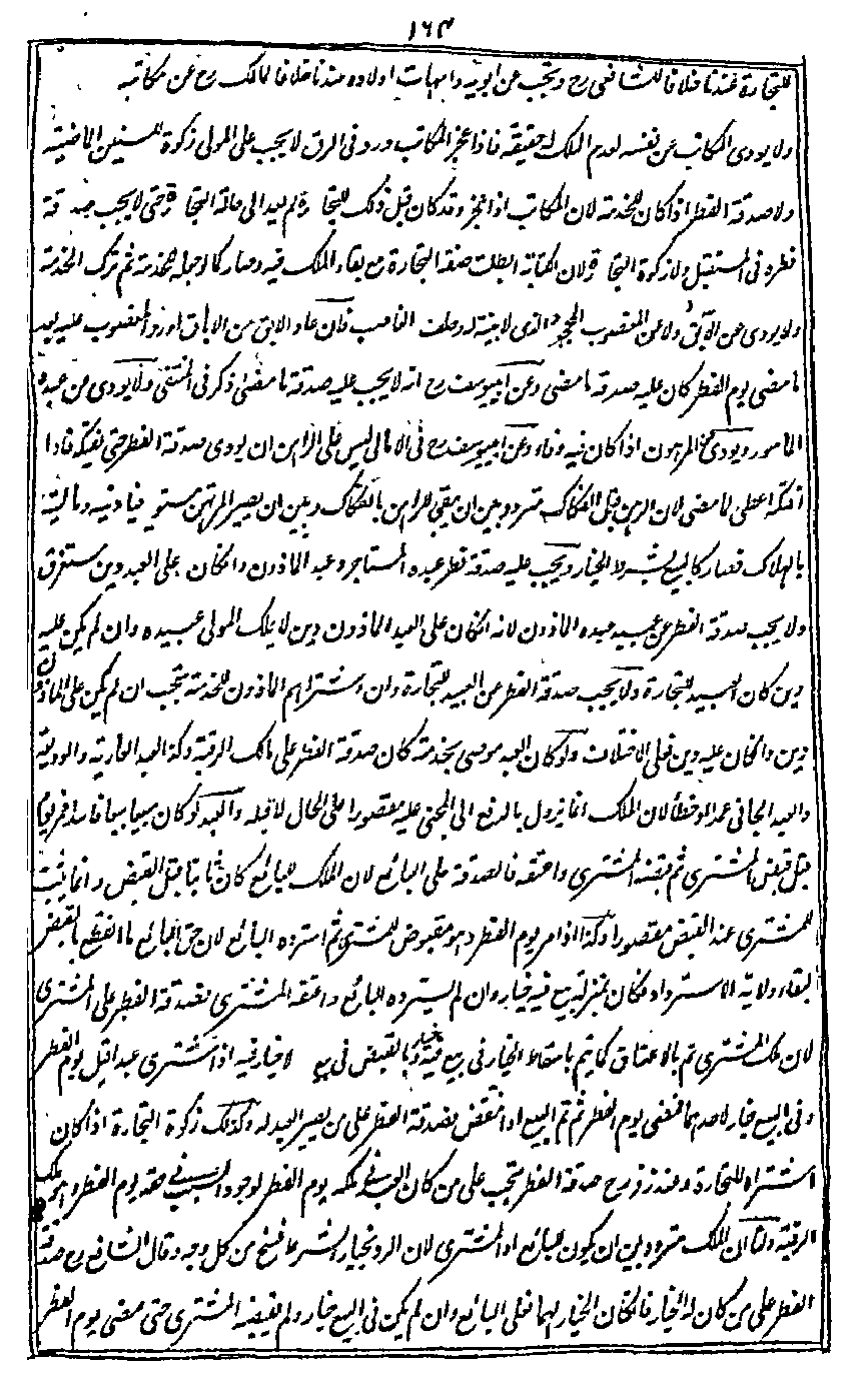 ١٦٣
للتجارة عندنا خلافا للشافعى رح ويجب عن ابويه وامهات اولاده عندنا خلافا لمالك رح عن مكاتبه
ولا يودى المكاتب عن نفسه لعدم الملك له حقيقة فاذا عجز المكاتب ورد فى الرق لا يجب على المولى زكوة السنين الماضية
ولا صدقة الفطر اذا كان للخدمة لان المكاتب اذا عجز وقد كان قبل ذلك للتجارة لم يعد الى حالة التجارة حتى لا يجب صدقة
فطره فى المستقبل ولا زكوة التجارة ولان الكتابة ابطلت صفة التجارة مع بقاء الملك فيه وصار كما لو جعله للخدمة ثم ترك الخدمة
ولا يودى عن الآبق ولا عن المغصوب المجحود الذى لا بينة له وحلف الغاصب فان عاد الابق من الاباق او رد المغصوب عليه بعد
ما مضى يوم الفطر كان عليه صدقة ما مضى وعن ابيوسف رح انه لا يجب عليه صدقة ما مضى ذكر فى المنتقى ولا يودى عن عبده
الماسور ويودى عن المرهون اذا كان فيه وفاء وعن ابيوسف رح فى الامالى ليس على الراهن ان يودى صدقة الفطر حتى يفتكه فاذا
افتكه اعطى لما مضى لان الرهن قبل الفكاك متردد بين ان يبقى للراهن بالفكاك وبين ان يصير المرتهن مستوفيا دينه وماليته
بالهلاك فصار كالمبيع بشرط الخيار ويجب عليه صدقة فطر عبده المستاجر وعبد الماذون وان كان على العبد دين مستغرق
ولا يجب صدقة الفطر عن عبيد عبده الماذون لانه ان كان على العبد الماذون دين لا يملك المولى عبيده وان لم يكن عليه
دين كان العبيد للتجارة ولا يجب صدقة الفطر عن العبيد للتجارة وان اشتراهم الماذون للخدمة يجب ان لم يكن على الماذون
دين وان كان عليه دين فعلى الاختلاف ولو كان العبد موصى بخدمة كان صدقة الفطر على مالك الرقبة وكذا العبد العارية والوديعة
والعبد الجانى عمدا او خطأ لان الملك انما يزول بالدفع الى المجنى عليه مقصورا على الحال لا قبله والعبد لو كان مبيعا بيعا فاسدا فمر يوم
قبل قبض المشترى ثم قبضه المشترى واعتقه فالصدقة على البائع لان الملك للبائع كان ثابتا قبل القبض وانما يثبت
للمشترى عند القبض مقصورا وكذا اذا مر يوم الفطر وهو مقبوض للمشترى ثم استرده البائع لان حق البائع ما انقطع بالقبض
لبقاء ولاية الاسترداد فكان بمنزلة بيع فيه خيار وان لم يسترده البائع واعتقه المشترى فصدقة الفطر على المشترى
لان ملك المشترى تم بالاعتاق كما يتم باسقاط الخيار فى بيع فيه خيار وبالقبض فى بيع لا خيار فيه اذا اشترى عبدا قبل يوم الفطر
وفى البيع خيار لاحدهما فمضى يوم الفطر ثم تم البيع او انتقض فصدقة الفطر على من يصير العبد له وكذلك زكوة التجارة اذا كان
اشتراه للتجارة وعند زفر رح صدقة الفطر تجب على من كان العبد فى ملكه يوم الفطر لوجود السبب فى حقه يوم الفطر وهو ملك
الرقبة ولنا ان الملك متردد بين ان يكون للبائع او المشترى لان الرد بخيار الشرط فسخ من كل وجه وقال الشافعى رح صدقة
الفطر على من كان له الخيار فان كان الخيار لهما فعلى البائع وان لم يكن فى البيع خيار ولم يقبضه المشترى حتى مضى يوم الفطر